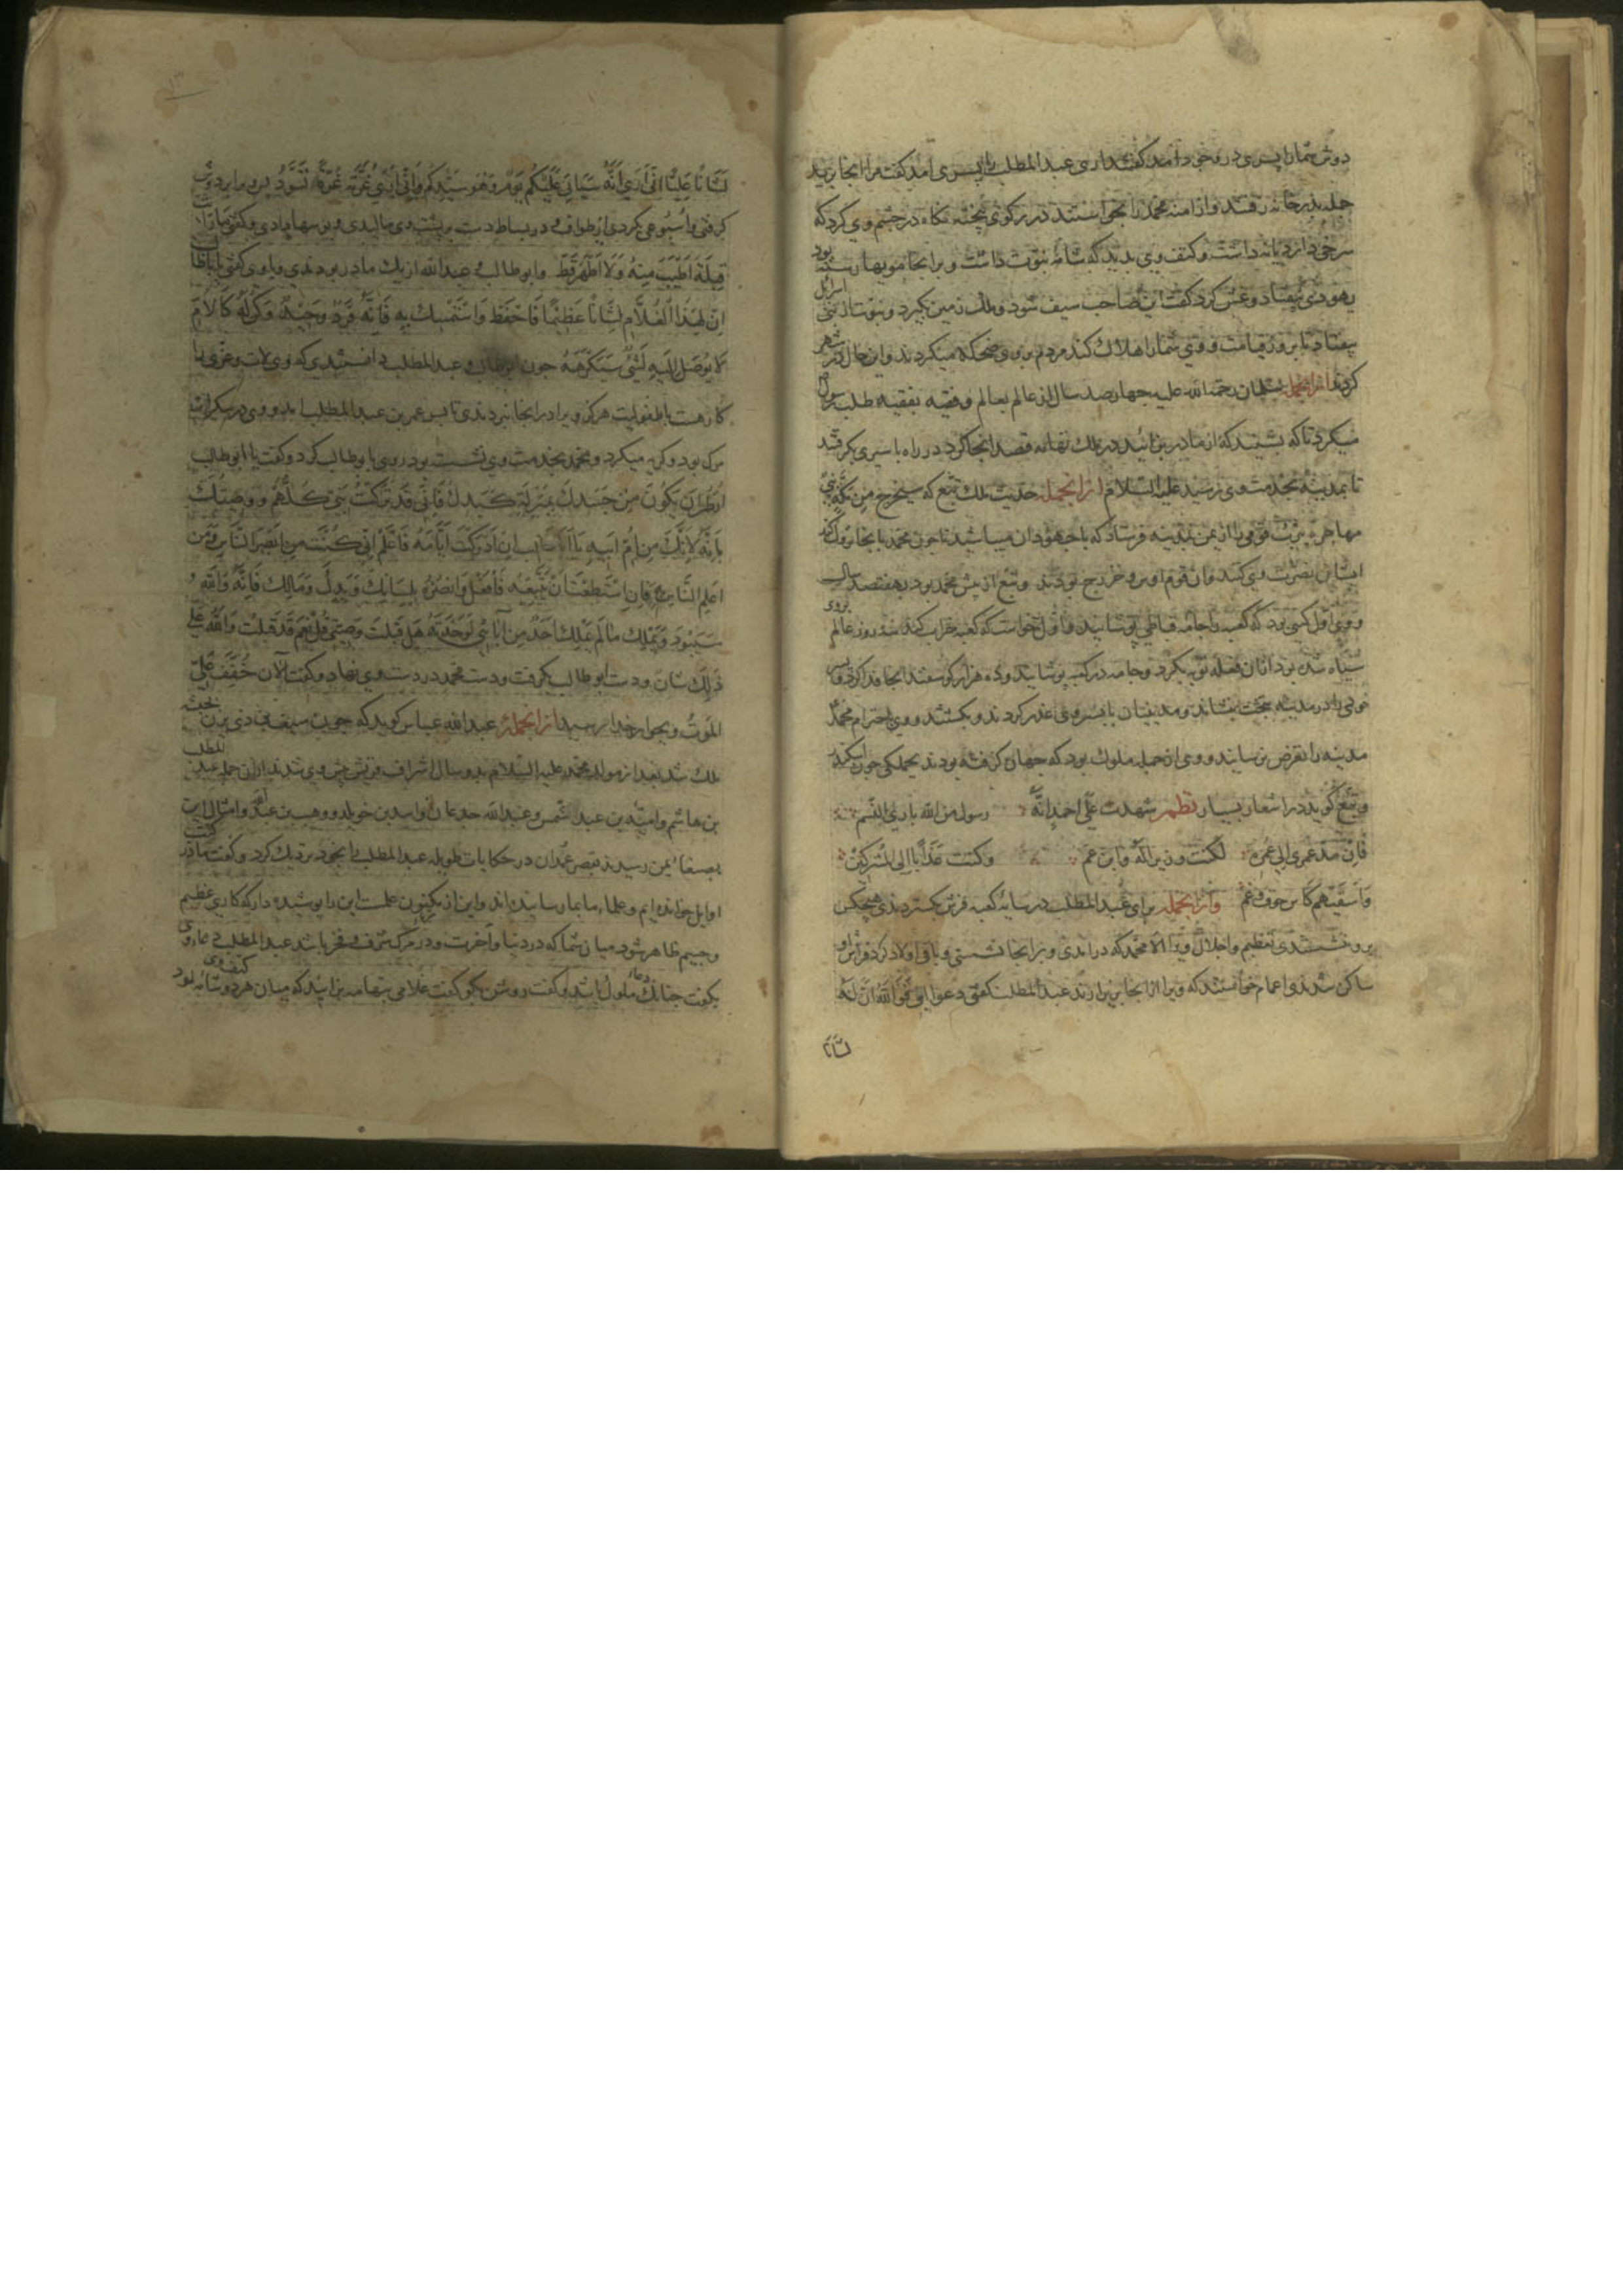 دوش شمارا پسری در وجود آمد گفتند آری عبدالمطلب را پسری آمد گفت مرا آنجا برید
جمله بدر خانه رفتند و از آمنه محمد را خواستند در رکوی پخته نگاه در چشم وی کرد که
سرخی داردیانه داشت و کتف وی بدید که شامهٔ نبوت داشت و برانجا مویها رسته بود
یهودی بیفتاد و غش کرد گفت این صاحب سیف شود و ملک زمین بگیرد و نبوت از بنی اسرائیل
بیفتاد تا بروز قیامت و وی شمارا هلاک کند مردم بر وی ضحکه میکردند و این حال در شهر
کردند ازانجمله سلمان رحمة الله علیه چهارصد سال از عالم بعالم و فقیه بفقیه طلب رسول
میکرد تا که بشنید که از مادر بزائید در ملک تهامه قصد آنجا کرد در راه باسیری بگرفتند
تا بمدینه بخدمت وی رسید علیه السلام ازانجمله حدیث ملک تبع که سیخرج من مکة نبی
مهاجره یثرب قومی را از یمن بمدینه فرستاد که با جهودان میباشید تا چون محمد بانجا نزول کند
ایشان نصرت وی کنند و آن قوم اوس و خزرج بودند و تبع از پیش محمد بود بهفتصد سال
و وی اول کسی بود که کعبه را جامه قباطی پوشانید و اول خواست که کعبه خراب کند سه روز عالم بروی
سیاه شده بود ازان فعله توبه بکرد و جامه در کعبه پوشانید و ده هزار گوسفند آنجا فدا کرد و پسر
خود را در مدینه بتخت بنشاند و مدینیان با پسر وی غدر کردند و بکشتند و وی احترام محمد
مدینه را تعرض نرسانید و وی از جمله ملوک بود که جهان گرفته بودند بجملگی چون اسکندر
و تبع گوید در اشعار بسیار نظم شهدت علی احمد انه رسول من الله باری النسم
فان مد عمری الی عمره لکنت وزیرا له وابن عم وکنت عذابا الی المشرکین
واسقیهم کاس خوف وغم وازانجمله برای عبدالمطلب در سایه کعبه فرش بگستردندی هیچکس
برو ننشستندی تعظیم و اجلال ویرا الا محمد که درآمدی و برانجا نشستی و باقی اولاد گرد فراش او
ساکن شدندی اعمام خواستند که ویرا ازانجا برآرند عبدالمطلب گفتی دعوا ابنی فوالله ان له
لشانا
لشانا علیا انی اری انه سیاتی علیکم یوم وهو سیدکم وانی اری غرته غرة تسود پس ویرا بر دوش
گرفتی و اسبوعی بکردی از طواف و در بساط دست بر پشت وی مالیدی و بوسها دادی و گفتی ما رایت
قبلة اطیب منه ولا اطهر قط و ابوطالب و عبدالله از یک مادر بودندی و باوی گفتی یا اباطالب
ان لهذا الغلام لشانا عظیما فاحفظ واستمسک به فانه فرد وحید وکن له کالام
لا یوصل الیه لشی سیکرهه چون ابوطالب و عبدالمطلب دانستندی که وی لات و عزی را
کاره است با طفولیت هرگز ویرا درانجا نبردندی تا بس عمر بن عبدالمطلب آمد و وی در سکرات
مرگ بود و گریه میکرد و محمد بخدمت وی نشسته بود روی با ابوطالب کرد و گفت یا ابوطالب
انظر ان یکون من جسدک بمنزلة کبدک فانی قد ترکت بنی کلهم ووصیتک
بانه لانک من ام ابیه یا اباطالب ان ادرکت ایامه فاعلم انی کنت من ابصر الناس ومن
اعلم الناس فان استطعت ان تتبعه فافعل وانصره بلسانک ویدک ومالک فانه والله
سیسود ویملک ما لم یملک احد من آبائی لوحدته هل قبلت وصیتی قال نعم قد قبلت والله علی
ذلک شان و دست ابوطالب بگرفت و دست محمد در دست وی نهاد و گفت الان خفف علی
الموت و بجوار خدا رسید ازانجمله عبدالله عباس گوید که چون سیف ذی یزن بحبشه
ملک شد بعد از مولد محمد علیه السلام بدو سال اشراف قریش پیش وی شدند ازان جمله عبدالمطلب
بن هاشم و امیه بن عبد شمس و عبدالله جدعان و اسد بن خویلد و وهب بن عبد و امثال این
بصنعاء یمن رسیدند بقصر غمدان در حکایات طویله عبدالمطلب را بخود نزدیک کرد و گفت ما در کتب
اوایل خوانده‌ایم و علما بما رسانیده‌اند و این از مکنون علمست این را پوشیده دار که کاری عظیم
و جسیم ظاهر شود میان شما که در دنیا و آخرت و در مرگ شرف و فخر باشد عبدالمطلب دعا روی
بگفت چنانک مامول باشد و گفت روشن بگو گفت غلامی بتهامه بزاید که میان هر دو شانه بود کتف وی